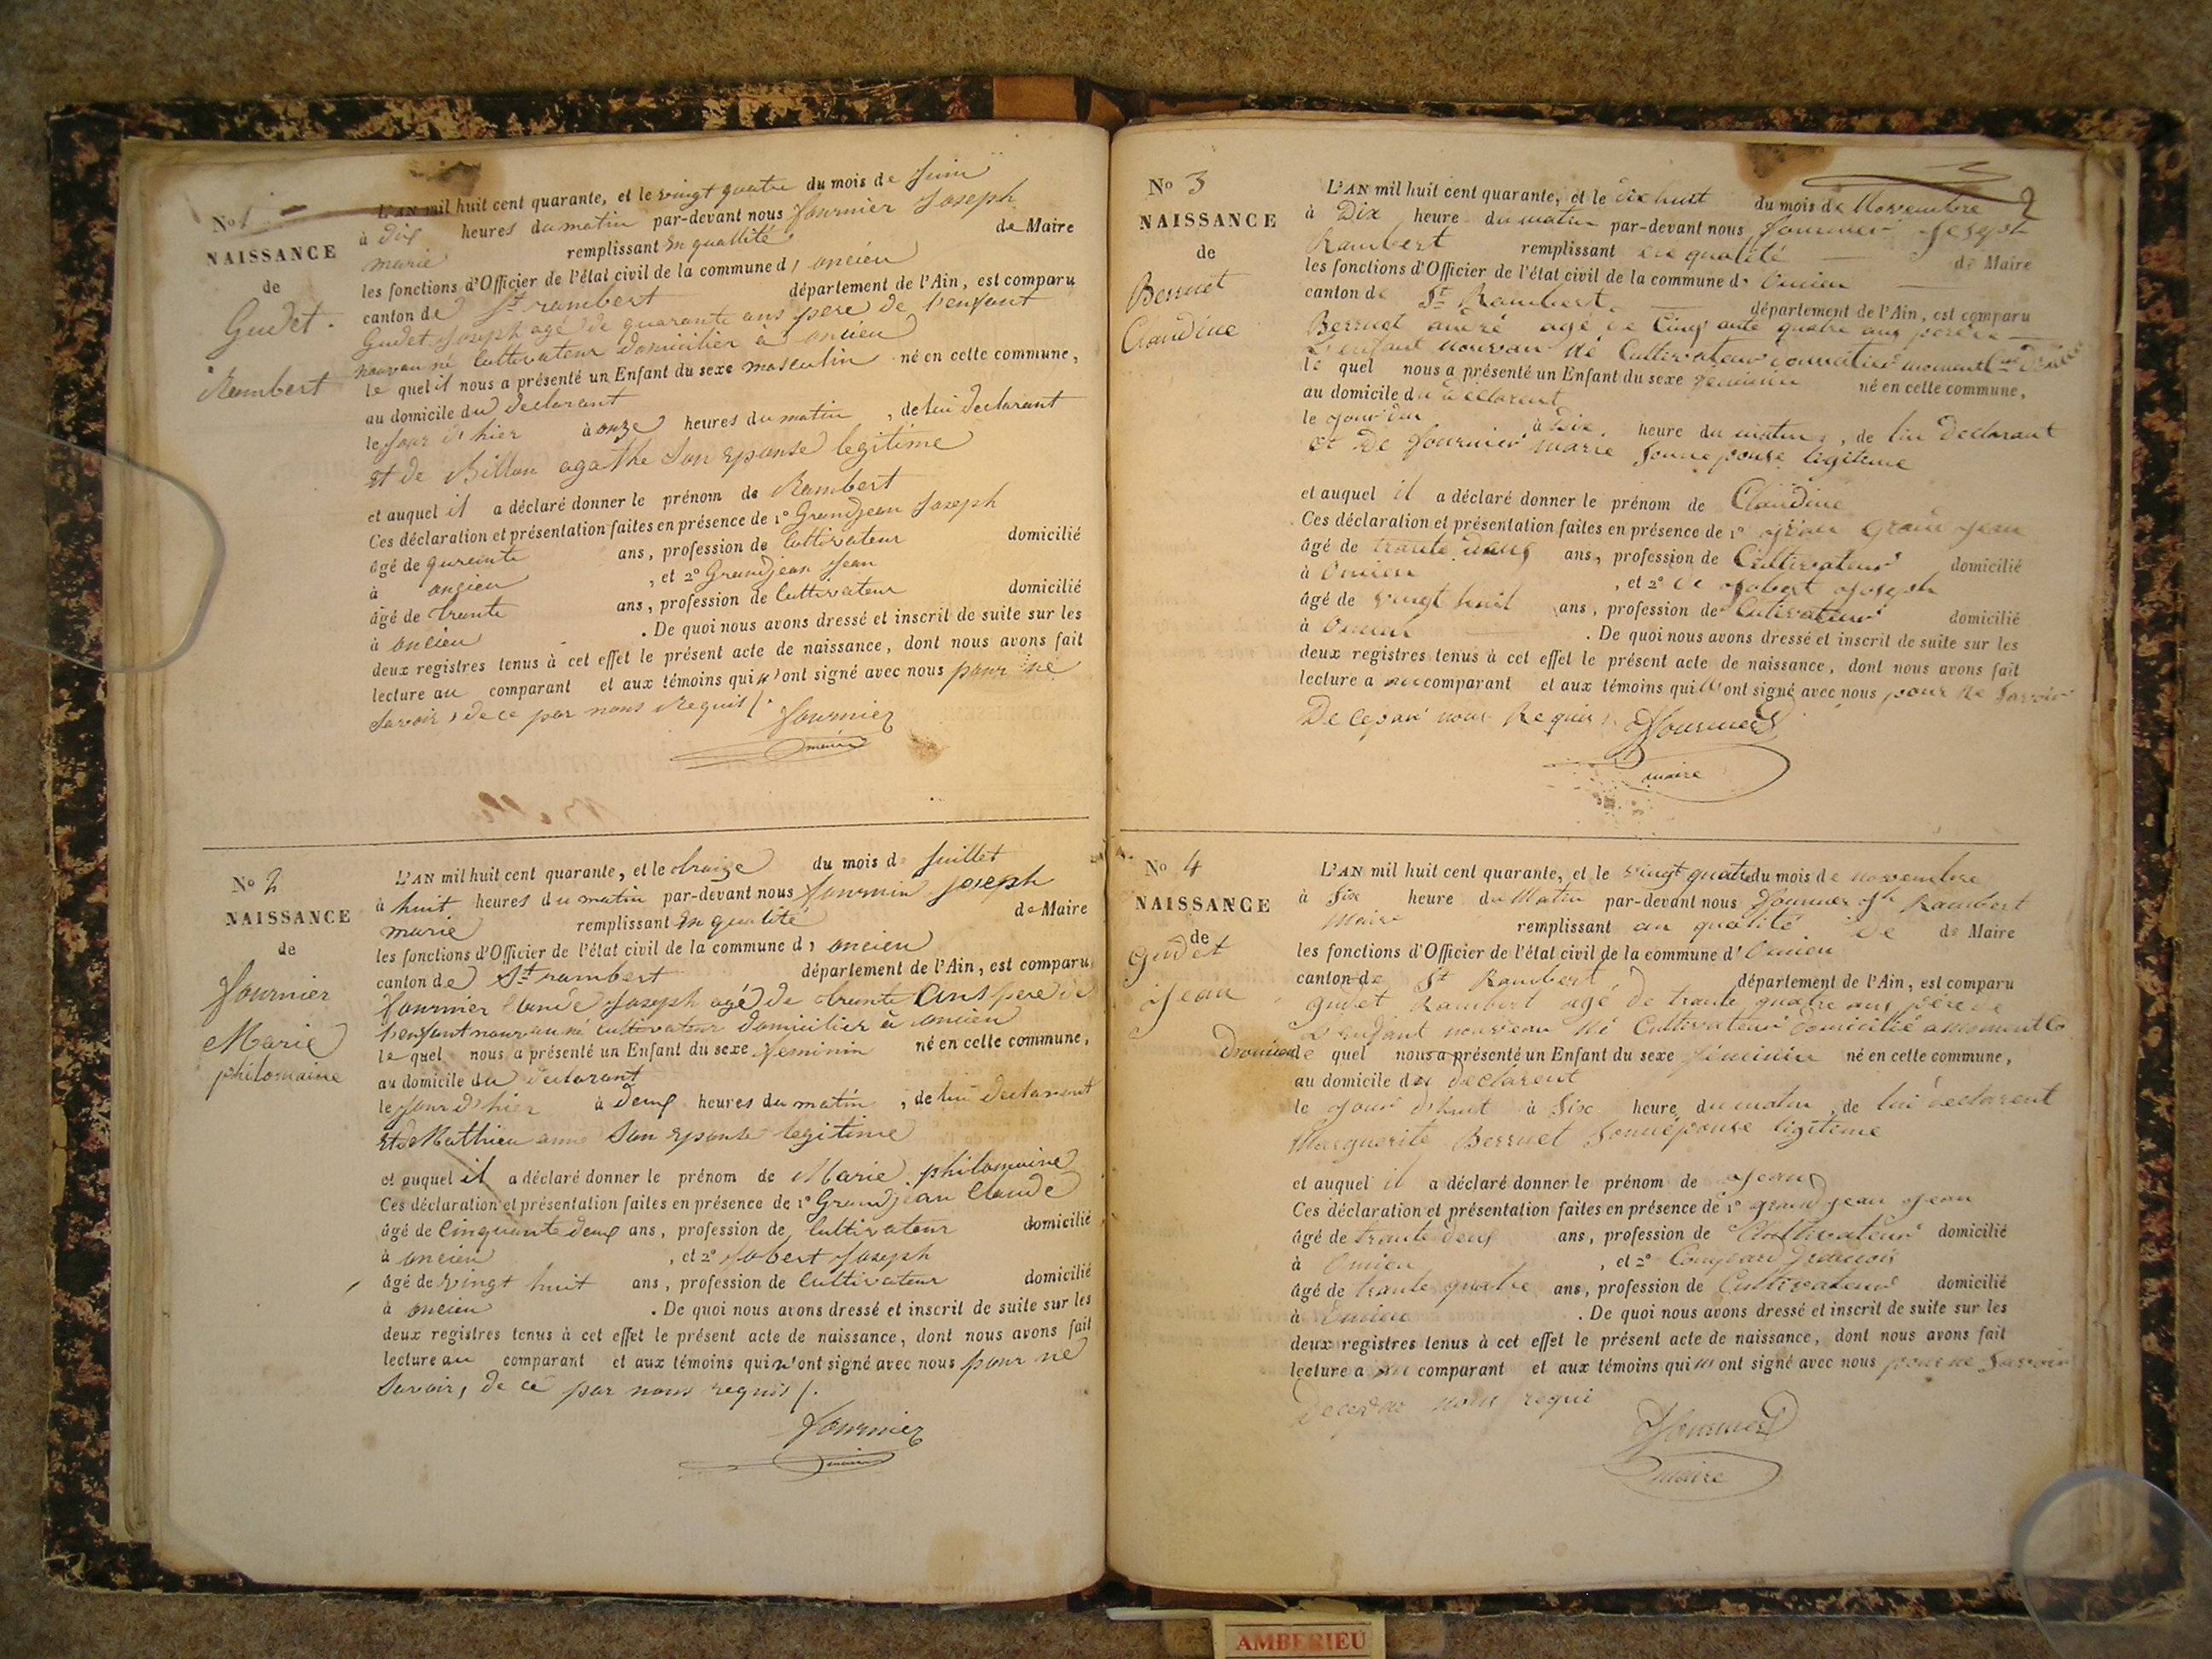 No 1
NAISSANCE
de
Gudet.
Rambert
L'AN mil huit cent quarante, et le vingt quatre du mois de Juin
à dix heures du matin par-devant nous fournier Joseph
marie remplissant en quallité de Maire
les fonctions d'Officier de l'état civil de la commune d, oncieu
canton de St rambert département de l'Ain, est comparu
Gudet Joseph agé de quarante ans pere de l'enfant
nouvau né Cultivateur domicilier à oncieu
le quel il nous a présenté un Enfant du sexe masculin né en cette commune,
au domicile du declarant
le Jour d'hier à onze heures du matin, de lui declarant
et de Billon agathe Son eponse legitime
et auquel il a déclaré donner le prénom de Rambert
Ces déclaration et présentation faites en présence de 1° Grandjean Joseph
âgé de quareinte ans, profession de Cultivateur domicilié
à oncieu, et 2° Grandjean Jean
âgé de trente ans, profession de Cultivateur domicilié
à oncieu. De quoi nous avons dressé et inscrit de suite sur les
deux registres tenus à cet effet le présent acte de naissance, dont nous avons fait
lecture au comparant et aux témoins qui n'ont signé avec nous pour ne
Savoir, de ce par nous Requis /.
fournier
maire
No 2
NAISSANCE
de
fournier
Marie
philomaine
L'AN mil huit cent quarante, et le traize du mois de Juillet
à huit heures du matin par-devant nous fournier Joseph
marie remplissant en qualité de Maire
les fonctions d'Officier de l'état civil de la commune d, oncieu
canton de St rambert département de l'Ain, est comparu
fournier Joseph agé de trente Ans pere de
l'enfant nouvau né cultivateur domicilier à oncieu
le quel nous a présenté un Enfant du sexe feminin né en cette commune,
au domicile du declarant
le Jour d'hier à deux heures du matin, de lui declarant
et de Mathieu anne Son eponse legitime
et auquel il a déclaré donner le prénom de Marie philomaine
Ces déclaration et présentation faites en présence de 1° Grandjean Claude
âgé de Cinquante deux ans, profession de Cultivateur domicilié
à oncieu, et 2° Jobert Joseph
âgé de vingt huit ans, profession de Cultivateur domicilié
à oncieu. De quoi nous avons dressé et inscrit de suite sur les
deux registres tenus à cet effet le présent acte de naissance, dont nous avons fait
lecture au comparant et aux témoins qui n'ont signé avec nous pour ne
Savoir, de ce par nous requis /.
fournier
maire
2
No 3
NAISSANCE
de
Berruet
Claudine
L'AN mil huit cent quarante, et le dix huit du mois de Novembre
à Dix heure du matin par-devant nous fournier Joseph
Rambert remplissant en qualité de Maire
les fonctions d'Officier de l'état civil de la commune d' Oncieu
canton de St Rambert département de l'Ain, est comparu
Berruet andré agé de Cinq ante quatre ans pere de
L'enfant nouvau né Cultivateur domicilié
le quel nous a présenté un Enfant du sexe féminin né en cette commune,
au domicile du declarent
le Jour à Dix heure du matin, de lui declarant
et De fournier marie Sonne pouse légitime
et auquel il a déclaré donner le prénom de Claudine
Ces déclaration et présentation faites en présence de 1° Jean Gran Jean
âgé de trante deux ans, profession de Cultivateur domicilié
à Oncieu, et 2° de Jobert Joseph
âgé de vingt huit ans, profession de Cultivateur domicilié
à Oncieu. De quoi nous avons dressé et inscrit de suite sur les
deux registres tenus à cet effet le présent acte de naissance, dont nous avons fait
lecture a au comparant et aux témoins qui n'ont signé avec nous pour ne Savoir
De ce par nous Requis
Fournier
maire
No 4
NAISSANCE
de
Gudet
Jean
L'AN mil huit cent quarante, et le vingt quatre du mois de novembre
à Six heure du Matin par-devant nous fournier Jh Rambert
Maire remplissant an qualité de de Maire
les fonctions d'Officier de l'état civil de la commune d' Oncieu
canton de St Rambert département de l'Ain, est comparu
Gudet Rambert agé De trante quatre ans père de
L'enfant nouveau né Cultivateur domicilié
le quel nous a présenté un Enfant du sexe féminin né en cette commune,
au domicile du declarent
le Jour d'huit à Six heure du matin, de lui declarent
Marguerite Berruet Sonnépouse ligitime
et auquel il a déclaré donner le prénom de Jean
Ces déclaration et présentation faites en présence de 1° grand jean Jean
âgé de trante deux ans, profession de Cultivateur domicilié
à Oncieu, et 2°
âgé de trante quatre ans, profession de Cultivateur domicilié
à Oncieu. De quoi nous avons dressé et inscrit de suite sur les
deux registres tenus à cet effet le présent acte de naissance, dont nous avons fait
lecture a au comparant et aux témoins qui n'ont signé avec nous pour ne Savoir
nous requi
Fournier
maire
AMBERIEU